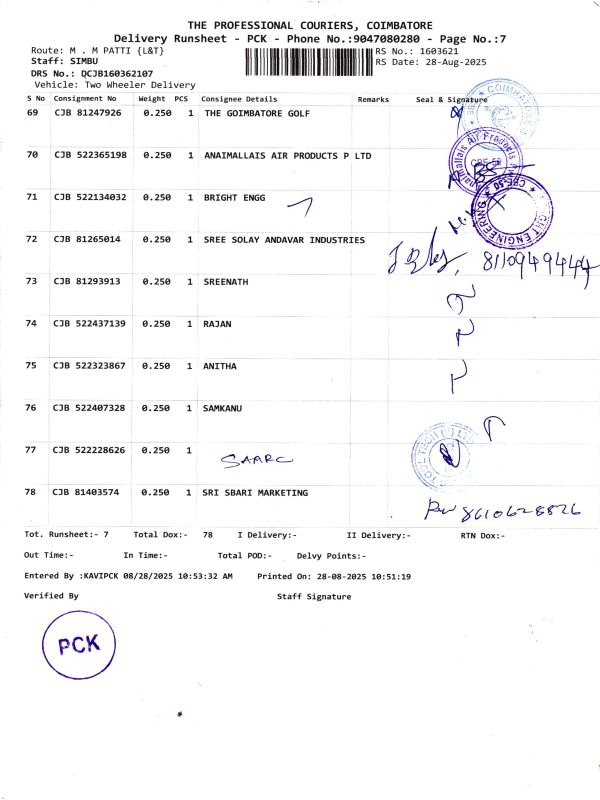 THE PROFESSIONAL COURIERS, COIMBATORE
Delivery Runsheet - PCK - Phone No.:9047080280 - Page No.:7
Route: M . M PATTI {L&T} RS No.: 1603621
Staff: SIMBU RS Date: 28-Aug-2025
DRS No.: QCJB160362107
Vehicle: Two Wheeler Delivery
S No Consignment No Weight PCS Consignee Details Remarks Seal & Signature
69 CJB 81247926 0.250 1 THE GOIMBATORE GOLF
70 CJB 522365198 0.250 1 ANAIMALLAIS AIR PRODUCTS P LTD
71 CJB 522134032 0.250 1 BRIGHT ENGG
72 CJB 81265014 0.250 1 SREE SOLAY ANDAVAR INDUSTRIES
8110949444
73 CJB 81293913 0.250 1 SREENATH
74 CJB 522437139 0.250 1 RAJAN
75 CJB 522323867 0.250 1 ANITHA
76 CJB 522407328 0.250 1 SAMKANU
77 CJB 522228626 0.250 1 SAARC
78 CJB 81403574 0.250 1 SRI SBARI MARKETING
8610628826
Tot. Runsheet:- 7 Total Dox:- 78 I Delivery:- II Delivery:- RTN Dox:-
Out Time:- In Time:- Total POD:- Delvy Points:-
Entered By :KAVIPCK 08/28/2025 10:53:32 AM Printed On: 28-08-2025 10:51:19
Verified By Staff Signature
PCK